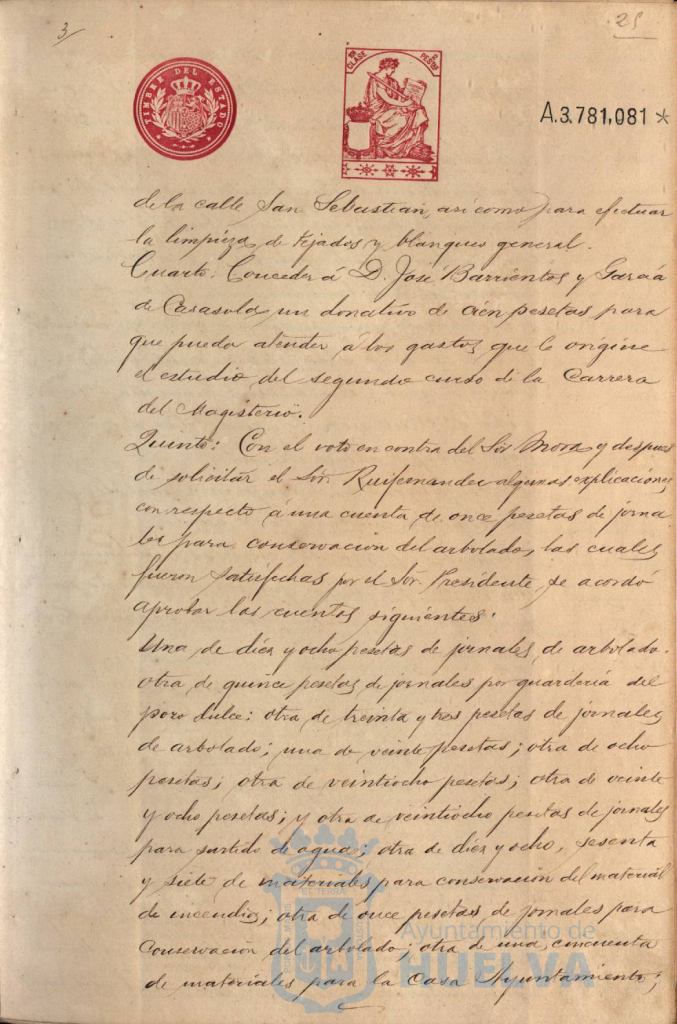 3/
25
TIMBRE DEL ESTADO
CLASE
2 PESETAS
A.3.781,081 *
de la calle San Sebastian, asi como para efectuar
la limpieza de tejados y blanqueo general.
Cuarto: Conceder á D. José Barrientos y García
de Carasola, un donativo de cien pesetas para
que pueda atender á los gastos que le origine
el estudio del segundo curso de la Carrera
del Magisterio.
Quinto: Con el voto en contra del Sor. Mora y despues
de solicitar el Sor. Ruifernandez algunas explicaciones
con respecto á una cuenta de once pesetas de jorna
les para conservacion del arbolado, las cuales
fueron satisfechas por el Sor. Presidente, se acordó
aprobar las cuentas siguientes:
Una de diez y ocho pesetas de jornales de arbolado.
otra de quince pesetas de jornales por guarderia del
pozo dulce: otra de treinta y tres pesetas de jornales
de arbolado; una de veinte pesetas; otra de ocho
pesetas; otra de veintiocho pesetas; otra de veinte
y ocho pesetas; y otra de veintiocho pesetas de jornales
para surtido de agua; otra de diez y ocho, sesenta
y siete de materiales para conservacion del material
de incendios; otra de once pesetas de jornales para
conservacion del arbolado; otra de una, cincuenta
de materiales para la Casa Ayuntamiento;
Ayuntamiento de
HUELVA